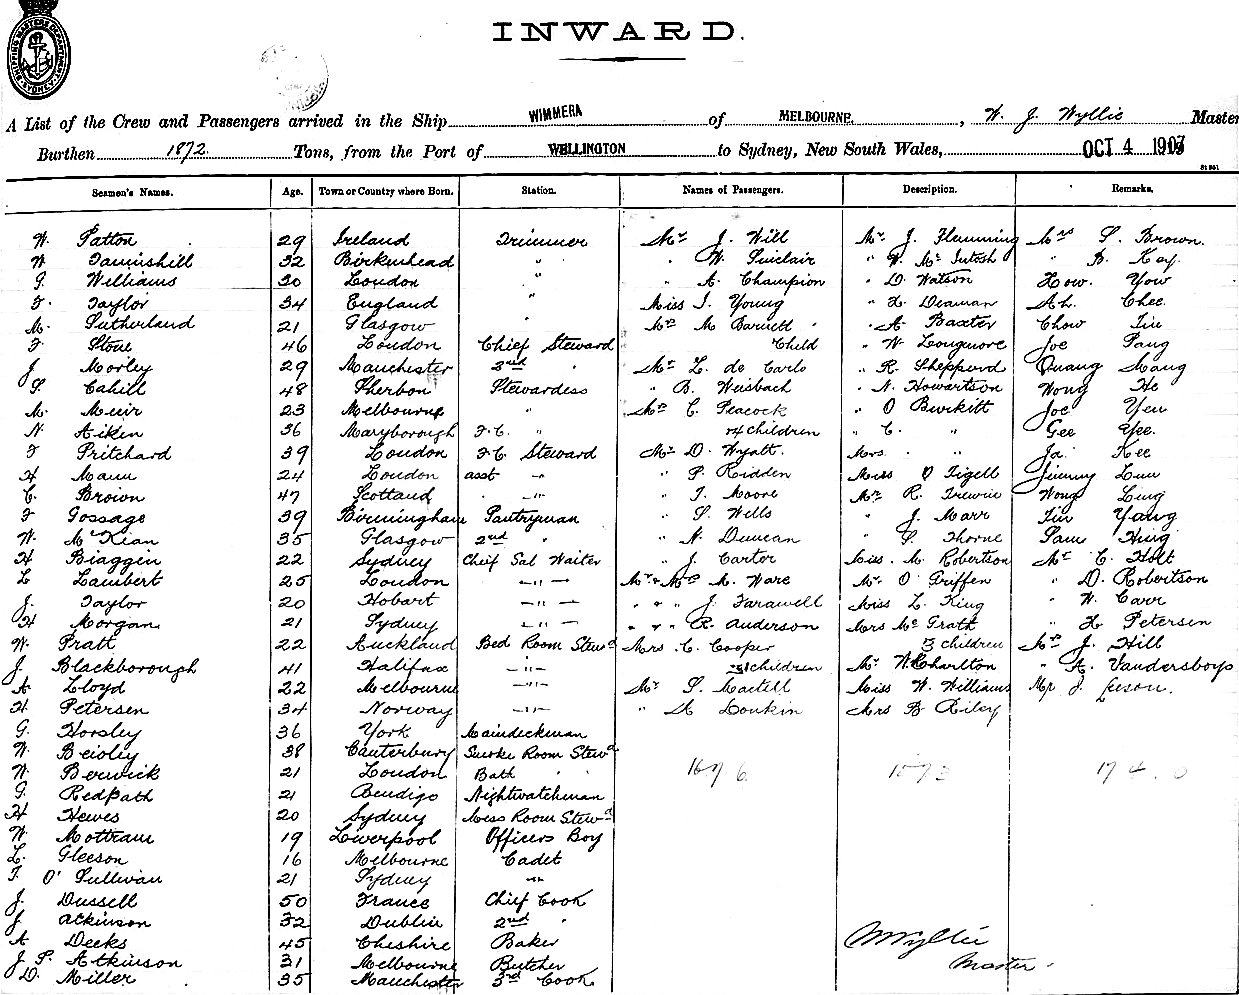 SHIPPING MASTERS DEPARTMENT SYDNEY
INWARD.
A List of the Crew and Passengers arrived in the Ship WIMMERA of MELBOURNE, W. J. Wyllie Master
Burthen 1872 Tons, from the Port of WELLINGTON to Sydney, New South Wales, OCT 4 1907
Seamen's Names. Age. Town or Country where Born. Station. Names of Passengers. Description. Remarks.
W. Patton 29 Ireland Trimmer Mr J. Will Mr. J. Flemming Mrs S. Brown.
W Tannahill 32 Birkenhead " " W. Sinclair " W. Mc Intosh " B. Key.
G. Williams 30 London " " A. Champion " D. Watson How. Yow
F. Taylor 34 England " Miss I. Young " L. Deaman Ah. Chee.
M. Sutherland 21 Glasgow " Mrs M Barnett " A. Baxter Chow Tin
F Stone 46 London Chief Steward Child " W. Longmore Joe Pang
J Morley 29 Manchester 2nd " Mr L. de Carlo " R. Shepperd Quang Sang
S. Cahill 48 Sherbon Stewardess " B. Weisbach " N. Howartson Wong He
M. Muir 23 Melbourne " Mrs C. Peacock " O Burkitt Joe Yen
N. Aiken 36 Maryborough F.C. " 4 children " C. " Gee Yee.
F Pritchard 39 London F.C. Steward Mr D. Wyatt. Mrs " " Ja. Kee
H Mann 24 London asst " " P. Ridden Miss O Tigell Jimmy Lum
C. Brown 47 Scotland " " " T. Moore Mr. R. Trewin Wong Ling
F Gossage 39 Birmingham Pantryman " S. Wells " J. Marr Tin Yang
W. McKian 35 Glasgow 2nd " " N. Duncan " S. Thorne Sam Hing
H Biaggin 22 Sydney Chief Sal Waiter " J. Carter Miss. M. Robertson Mr C. Holt
L Lambert 25 London " Mr & Mrs M. Ware Mr. O Griffen " D. Robertson
J. Taylor 20 Hobart " " " " J. Farawell Miss L. King " W. Carr
H Morgan 21 Sydney " " " " R. Anderson Mrs Mc Grath " L. Petersen
W. Pratt 22 Auckland Bed Room Stewd Mrs. C. Cooper 3 children Mrs J. Hill
J. Blackborough 41 Halifax " children Mr. W. Charlton " A. Vandersboys
A Lloyd 22 Melbourne " Mr S. Mactell Miss W. Williams Mr J. Leeson.
H Petersen 34 Norway " " A Donkin Mrs B Riley
G. Horsley 36 York Maindeckman
W. Beisley 38 Canterbury Smoke Room Stewd
W. Berwick 21 London Bath " "
G. Redpath 21 Bendigo Nightwatchman
H Hewes 20 Sydney Mess Room Stewd
W. Mottram 19 Liverpool Officers Boy
L. Gleeson 16 Melbourne Cadet
T. O' Sullivan 21 Sydney "
J. Dussell 50 France Chief Cook
J Atkinson 32 Dublin 2nd "
A Deeks 45 Cheshire Baker WJWyllie
J. P. Atkinson 31 Melbourne Butcher Master.
D. Miller 35 Manchester 3rd Cook